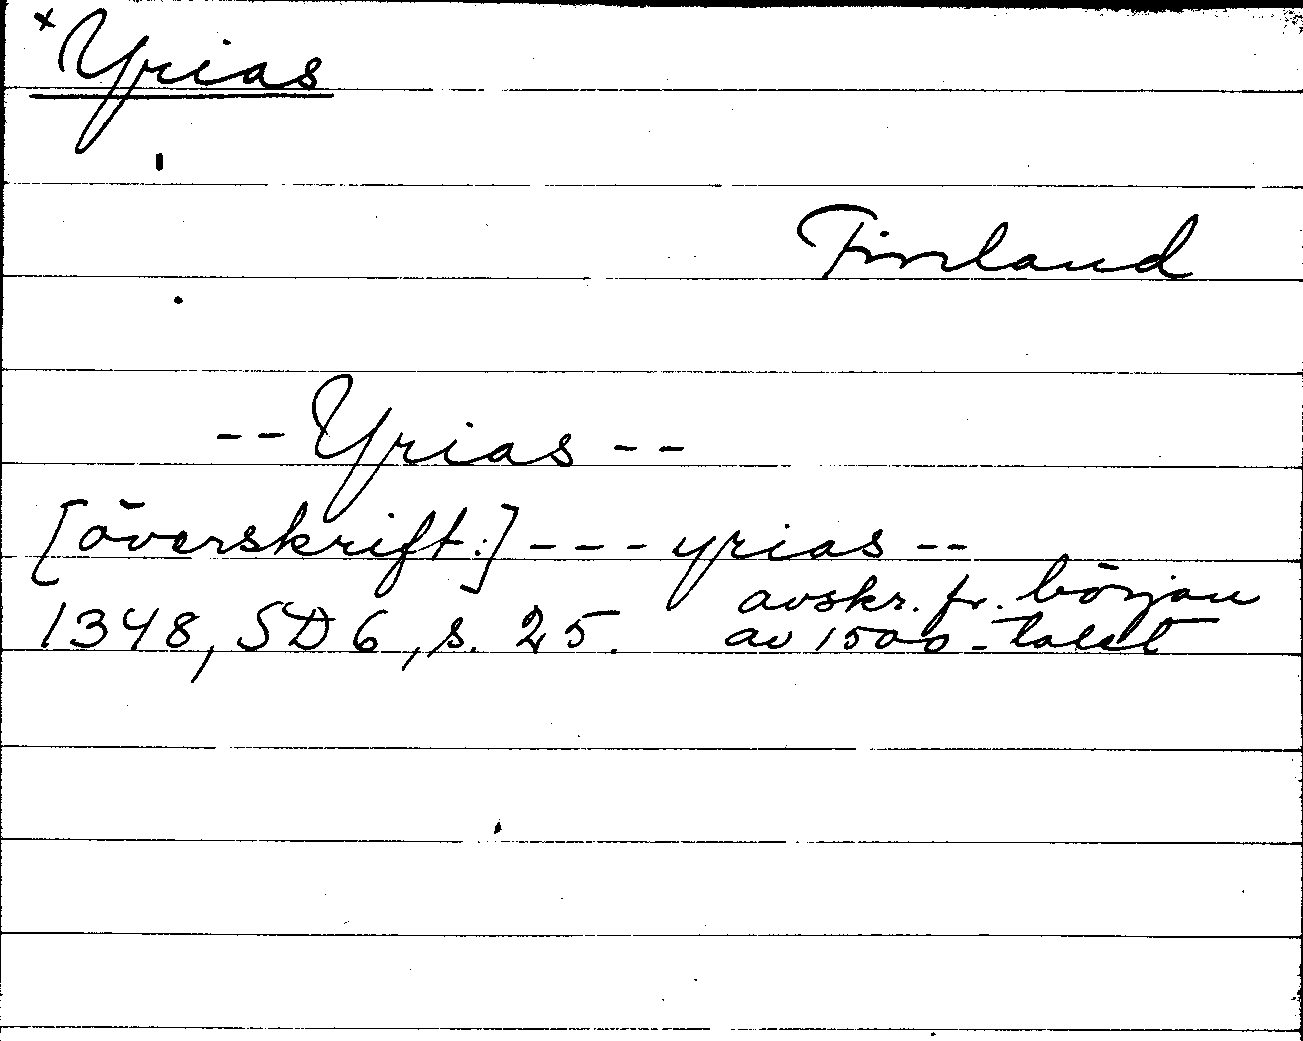 ×Yrias
Finland
-- Yrias --
[överskrift:] --- yrias --
1348, SD 6, s. 25. avskr. fr. början
av 1500-talet